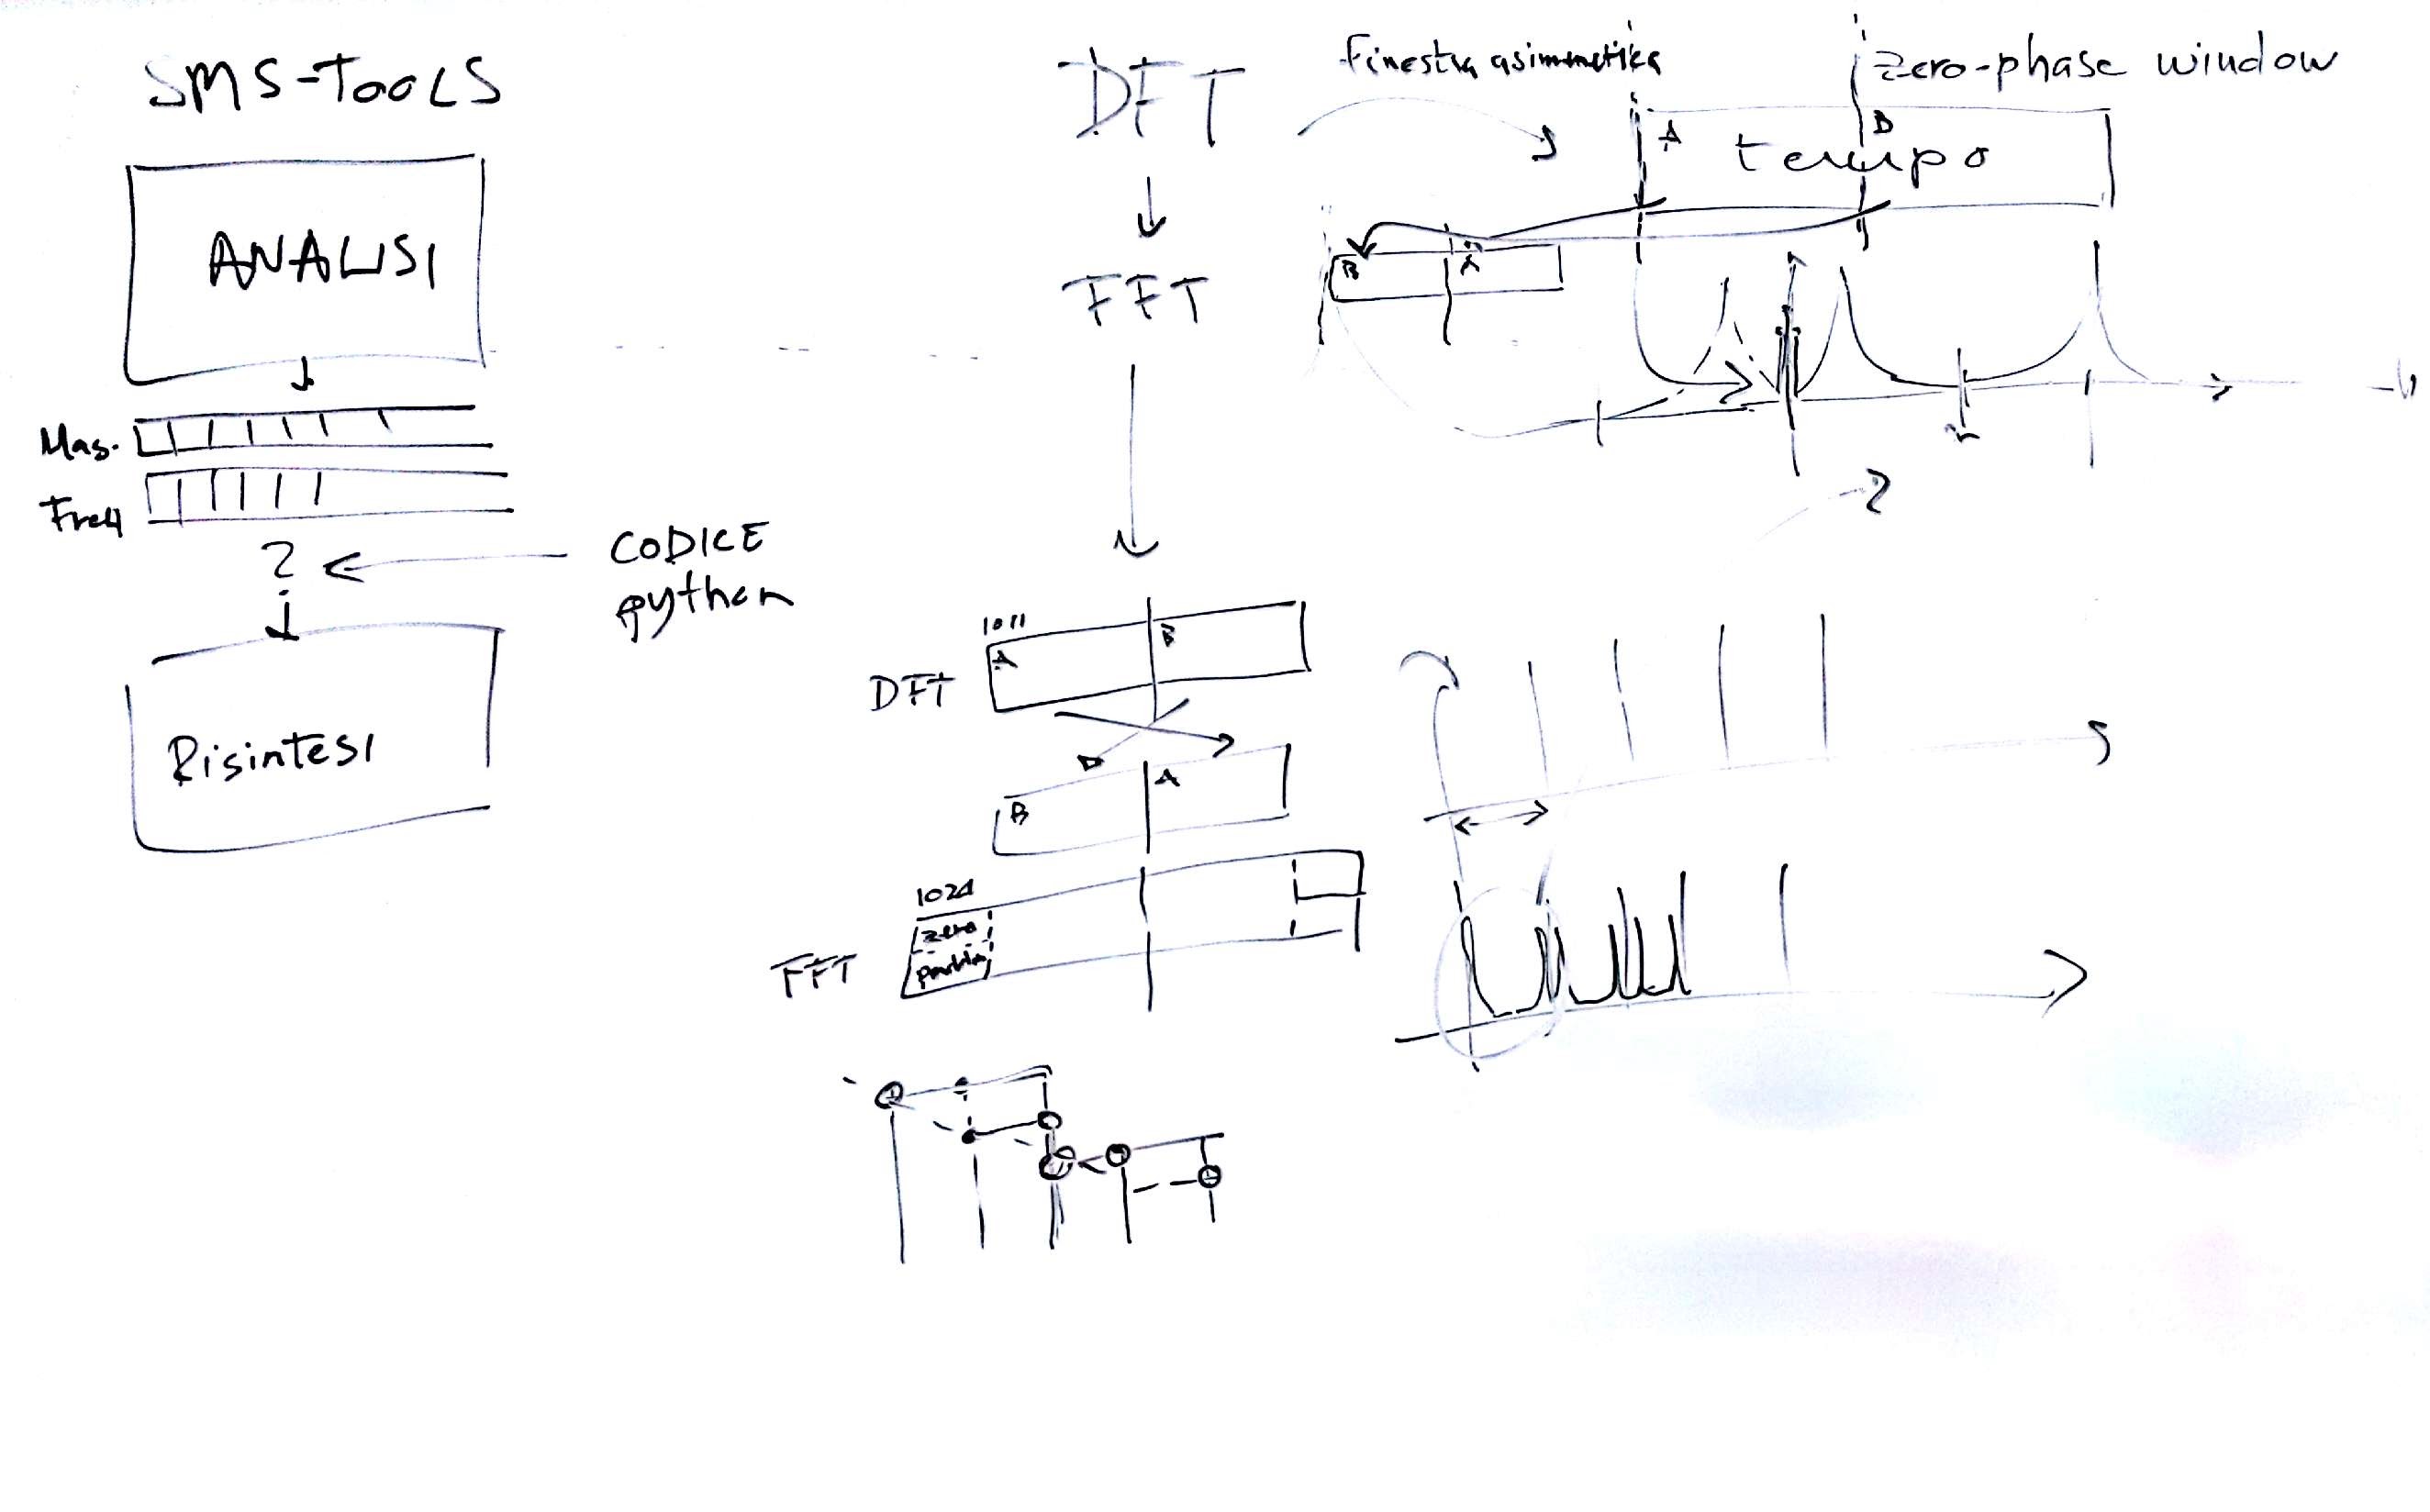 SMS-TOOLS
ANALISI
Mag.
Freq
?
CODICE
python
Risintesi
DFT
FFT
finestra asimmetrica
zero-phase window
A
B
tempo
B
A
1011
A
B
DFT
B
A
1024
zero
padding
FFT